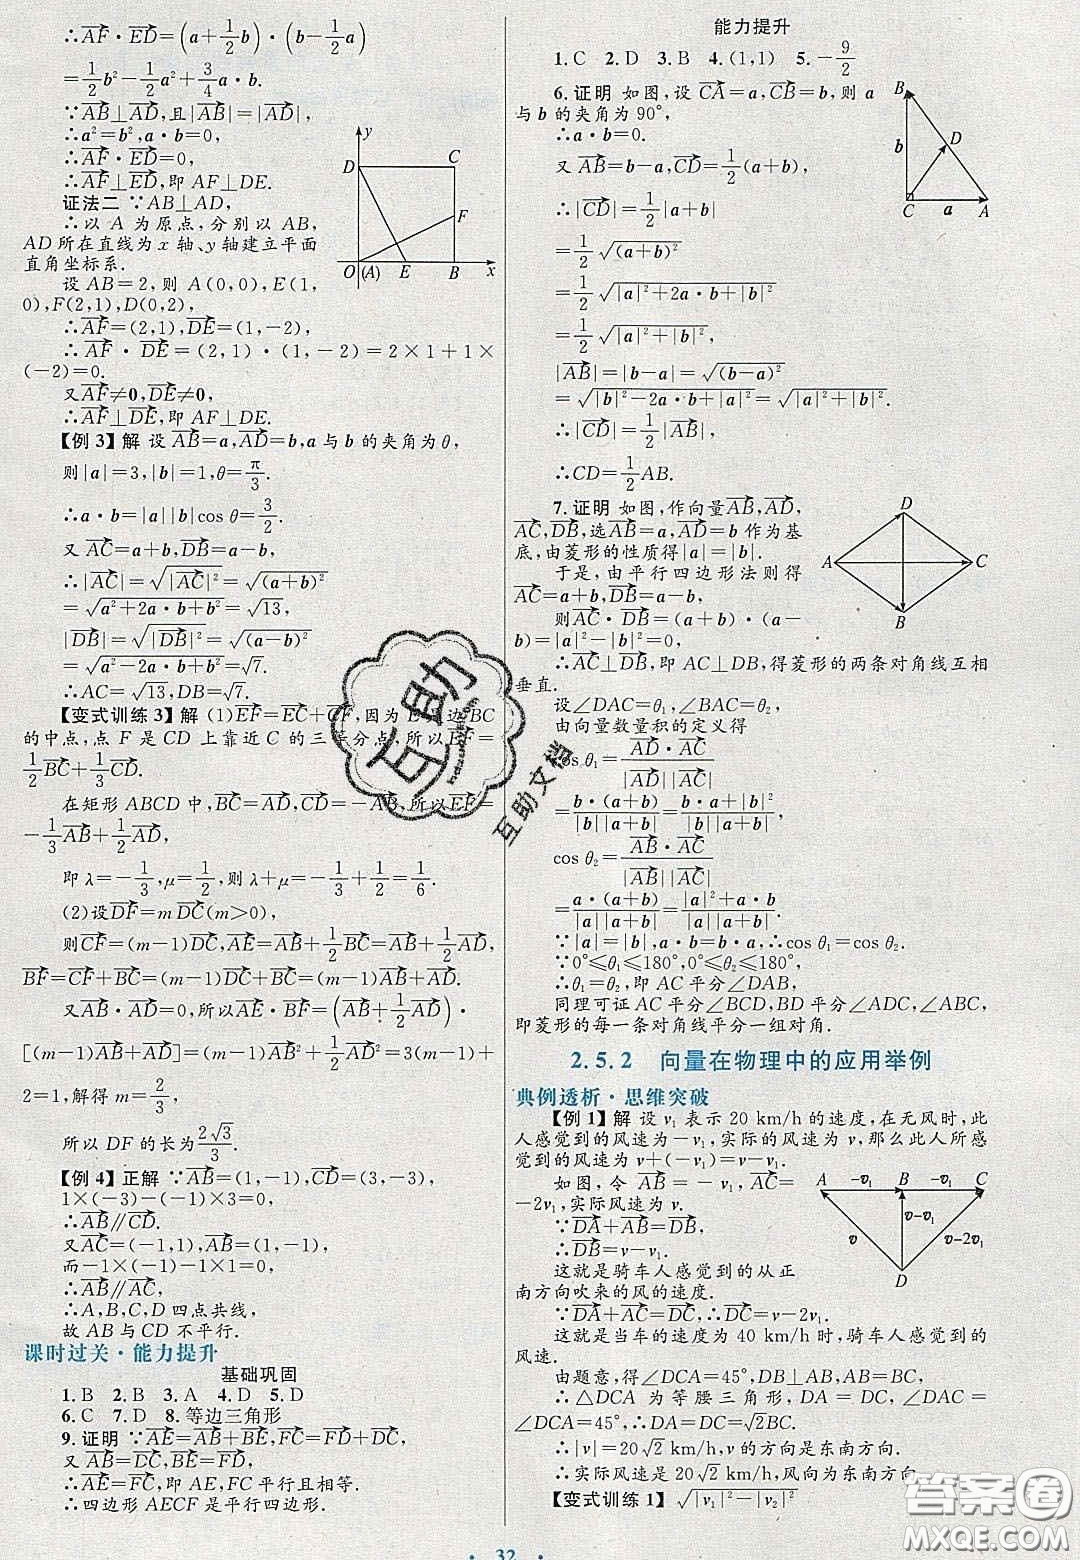 ∴AF·ED=(a+1/2b)·(b-1/2a)
=1/2b²-1/2a²+3/4a·b.
∵AB⊥AD,且|AB|=|AD|,
∴a²=b²,a·b=0,
∴AF·ED=0,
∴AF⊥ED,即 AF⊥DE.
证法二 ∵AB⊥AD,
∴以 A 为原点,分别以 AB,
AD 所在直线为 x 轴、y 轴建立平面
直角坐标系.
设 AB=2,则 A(0,0),E(1,
0),F(2,1),D(0,2),
∴AF=(2,1),DE=(1,-2),
∴AF·DE=(2,1)·(1,-2)=2×1+1×
(-2)=0.
又AF≠0,DE≠0,
∴AF⊥DE,即 AF⊥DE.
y
D C
F
O (A) E B x
【例 3】解 设AB=a,AD=b,a与 b 的夹角为θ,
则|a|=3,|b|=1,θ=π/3.
∴a·b=|a||b|cos θ=3/2.
又 AC=a+b,DB=a-b,
∴|AC|=√|AC|²=√(a+b)²
=√a²+2a·b+b²=√13,
|DB|=√|DB|²=√(a-b)²
=√a²-2a·b+b²=√7.
∴AC=√13,DB=√7.
【变式训练 3】解 (1)EF=EC+CF,因为 E 边 BC
的中点,点 F 是 CD 上靠近 C 的三等分点,所以EF=
1/2BC+1/3CD.
在矩形 ABCD 中,BC=AD,CD=-AB,所以EF=
-1/3AB+1/2AD,
即 λ=-1/3,μ=1/2,则 λ+μ=-1/3+1/2=1/6.
(2)设DF=mDC(m>0),
则CF=(m-1)DC,AE=AB+1/2BC=AB+1/2AD,
BF=CF+BC=(m-1)DC+BC=(m-1)AB+AD.
又AB·AD=0,所以AE·BF=(AB+1/2AD)·
[(m-1)AB+AD]=(m-1)AB²+1/2AD²=3(m-1)+
2=1,解得 m=2/3,
所以 DF 的长为2√3/3.
【例 4】正解 ∵AB=(1,-1),CD=(3,-3),
1×(-3)-(-1)×3=0,
∴AB∥CD.
又AC=(-1,1),AB=(1,-1),
而-1×(-1)-1×1=0,
∴AB∥AC,
∴A,B,C,D 四点共线,
故 AB 与 CD 不平行.
课时过关·能力提升
基础巩固
1.B 2.B 3.A 4.D 5.D
6.C 7.D 8.等边三角形
9.证明 ∵AE=AB+BE,FC=FD+DC,
又 AB=DC,BE=FD,
∴AE=FC,即 AE,FC 平行且相等.
∴四边形 AECF 是平行四边形.
能力提升
1.C 2.D 3.B 4.(1,1) 5.-9/2
6.证明 如图,设 CA=a,CB=b,则 a
与 b 的夹角为 90°,
∴a·b=0.
又 AB=b-a,CD=1/2(a+b),
∴|CD|=1/2|a+b|
=1/2√(a+b)²
=1/2√|a|²+2a·b+|b|²
=1/2√|a|²+|b|²,
|AB|=|b-a|=√(b-a)²
=√|b|²-2a·b+|a|²=√|a|²+|b|².
∴|CD|=1/2|AB|,
∴CD=1/2AB.
B
b D
C a A
7.证明 如图,作向量AB,AD,
AC,DB,选AB=a,AD=b 作为基
底,由菱形的性质得|a|=|b|.
于是,由平行四边形法则得
AC=a+b,DB=a-b,
则AC·DB=(a+b)·(a-
b)=|a|²-|b|²=0,
∴AC⊥DB,即 AC⊥DB,得菱形的两条对角线互相
垂直.
D
A C
B
设∠DAC=θ₁,∠BAC=θ₂,
由向量数量积的定义得
cos θ₁=AD·AC/|AD||AC|
=b·(a+b)/|b||a+b|=a·b+|b|²/|b||a+b|,
cos θ₂=AB·AC/|AB||AC|
=a·(a+b)/|a||a+b|=|a|²+a·b/|a||a+b|.
∵|a|=|b|,a·b=b·a,∴cos θ₁=cos θ₂.
∵0°≤θ₁≤180°,0°≤θ₂≤180°,
∴θ₁=θ₂,即 AC 平分∠DAB,
同理可证 AC 平分∠BCD,BD 平分∠ADC,∠ABC,
即菱形的每一条对角线平分一组对角.
2.5.2 向量在物理中的应用举例
典例透析·思维突破
【例 1】解 设 v₁ 表示 20 km/h 的速度,在无风时,此
人感觉到的风速为-v₁,实际的风速为 v,那么此人所感
觉到的风速为 v+(-v₁)=v-v₁.
如图,令 AB=-v₁,AC=
-2v₁,实际风速为 v.
∵DA+AB=DB,
∴DB=v-v₁.
这就是骑车人感觉到的从正
南方向吹来的风的速度.
A -v₁ B -v₁ C
v v-v₁ v-2v₁
D
∵DA+AC=DC,∴DC=v-2v₁.
这就是当车的速度为 40 km/h时,骑车人感觉到的
风速.
由题意,得∠DCA=45°,DB⊥AC,AB=BC,
∴△DCA 为等腰三角形,DA=DC,∠DAC=
∠DCA=45°,∴DA=DC=√2BC.
∴|v|=20√2 km/h,v 的方向是东南方向.
∴实际风速是 20√2 km/h,风向为东南方向.
【变式训练 1】√|v₁|²-|v₂|²
· 32 ·
互助
互助文档
答案圈
MXQE.COM